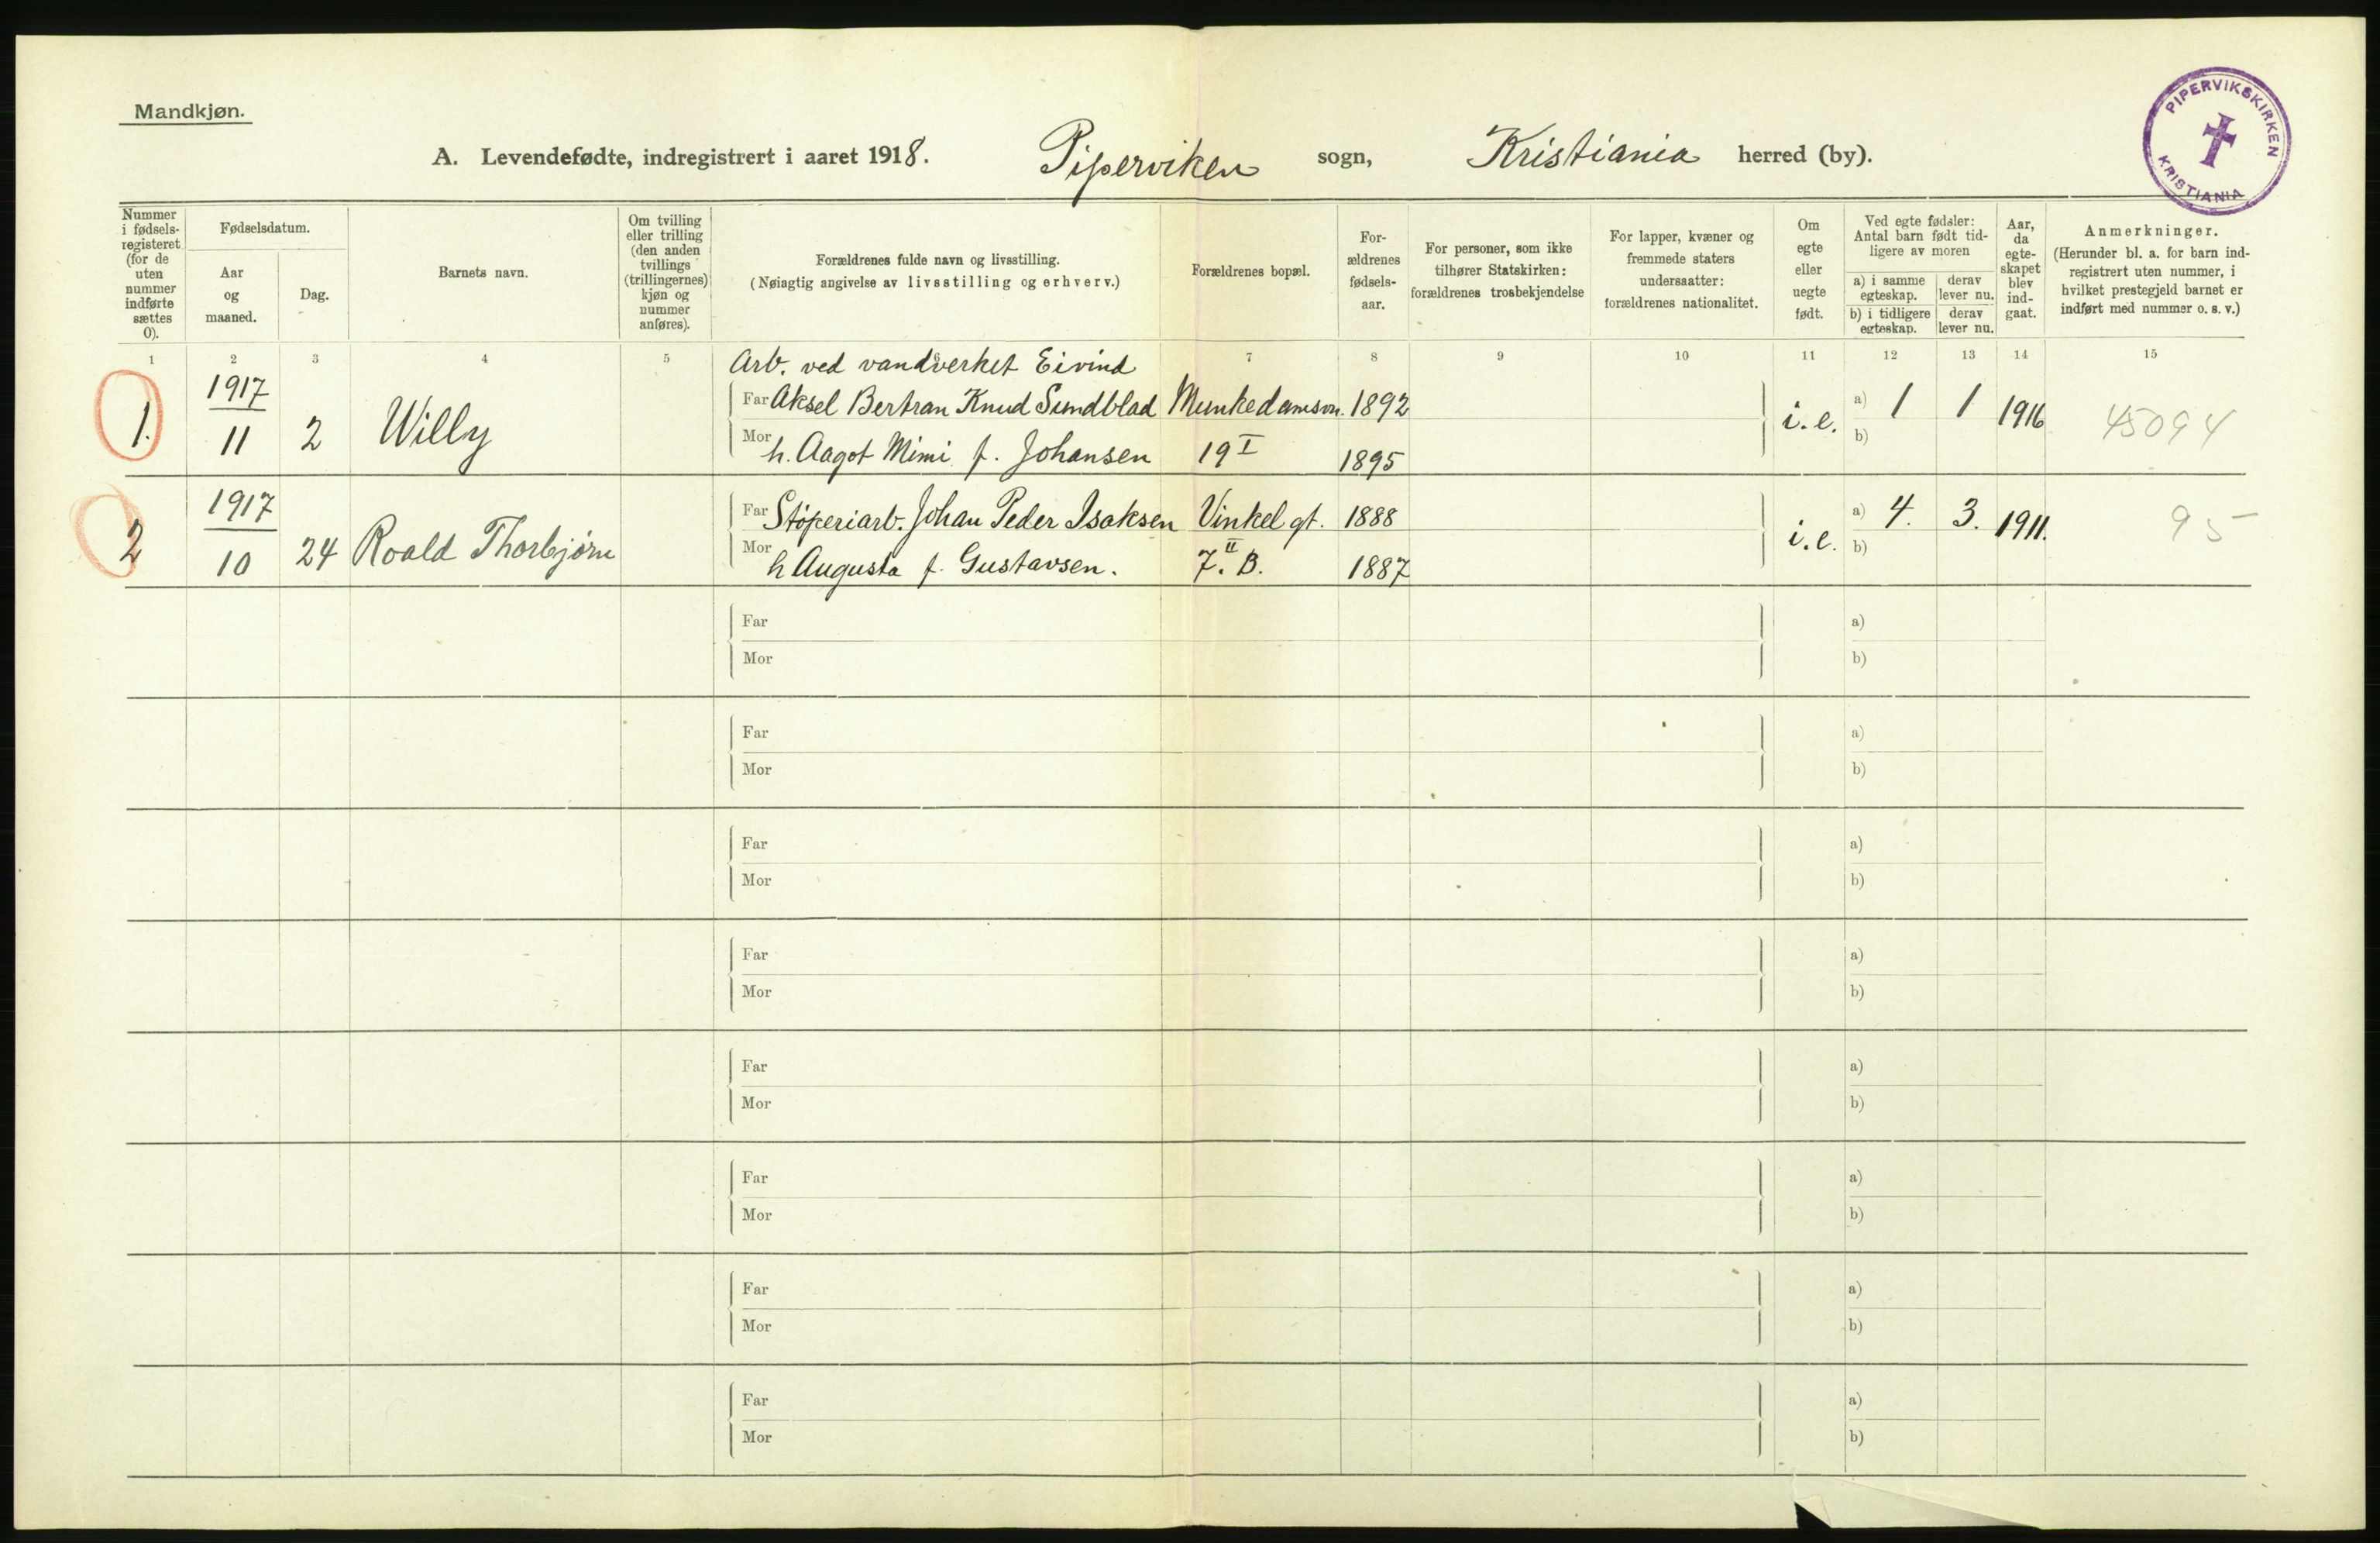 Mandkjøn.
PIPERVIKSKIRKEN
KRISTIANIA
A. Levendefødte, indregistrert i aaret 1918. Piperviken sogn, Kristiania herred (by).
Nummer i fødsels-registeret (for de uten nummer indførte sættes 0).
Fødselsdatum.
Aar og maaned.
Dag.
Barnets navn.
Om tvilling eller trilling (den anden tvillings (trillingernes) kjøn og nummer anføres).
Forældrenes fulde navn og livsstilling.
(Nøiagtig angivelse av livsstilling og erhverv.)
Forældrenes bopæl.
For-ældrenes fødsels-aar.
For personer, som ikke tilhører Statskirken: forældrenes trosbekjendelse
For lapper, kvæner og fremmede staters undersaatter: forældrenes nationalitet.
Om egte eller uegte født.
Ved egte fødsler: Antal barn født tid-ligere av moren
a) i samme egteskap.
derav lever nu.
b) i tidligere egteskap.
derav lever nu.
Aar, da egte-skapet blev ind-gaat.
Anmerkninger.
(Herunder bl. a. for barn ind-registrert uten nummer, i hvilket prestegjeld barnet er indført med nummer o. s. v.)
1 2 3 4 5 6 7 8 9 10 11 12 13 14 15
Arb. ved vandverket Eivind
1. 1917 11 2 Willy
Far Aksel Bertran Knud Sundblad Munkedamsvn. 1892
Mor h. Aagot Mimi f. Johansen 19 I 1895
i.e. a) 1 1 1916 45094
b)
2 1917 10 24 Roald Thorbjørn
Far Støperiarb. Johan Peder Isaksen Vinkel gt. 1888
Mor h Augusta f. Gustavsen. 7. II B. 1887
i.e. a) 4. 3. 1911. 95
b)
Far a)
Mor b)
Far a)
Mor b)
Far a)
Mor b)
Far a)
Mor b)
Far a)
Mor b)
Far a)
Mor b)
Far a)
Mor b)
Far a)
Mor b)